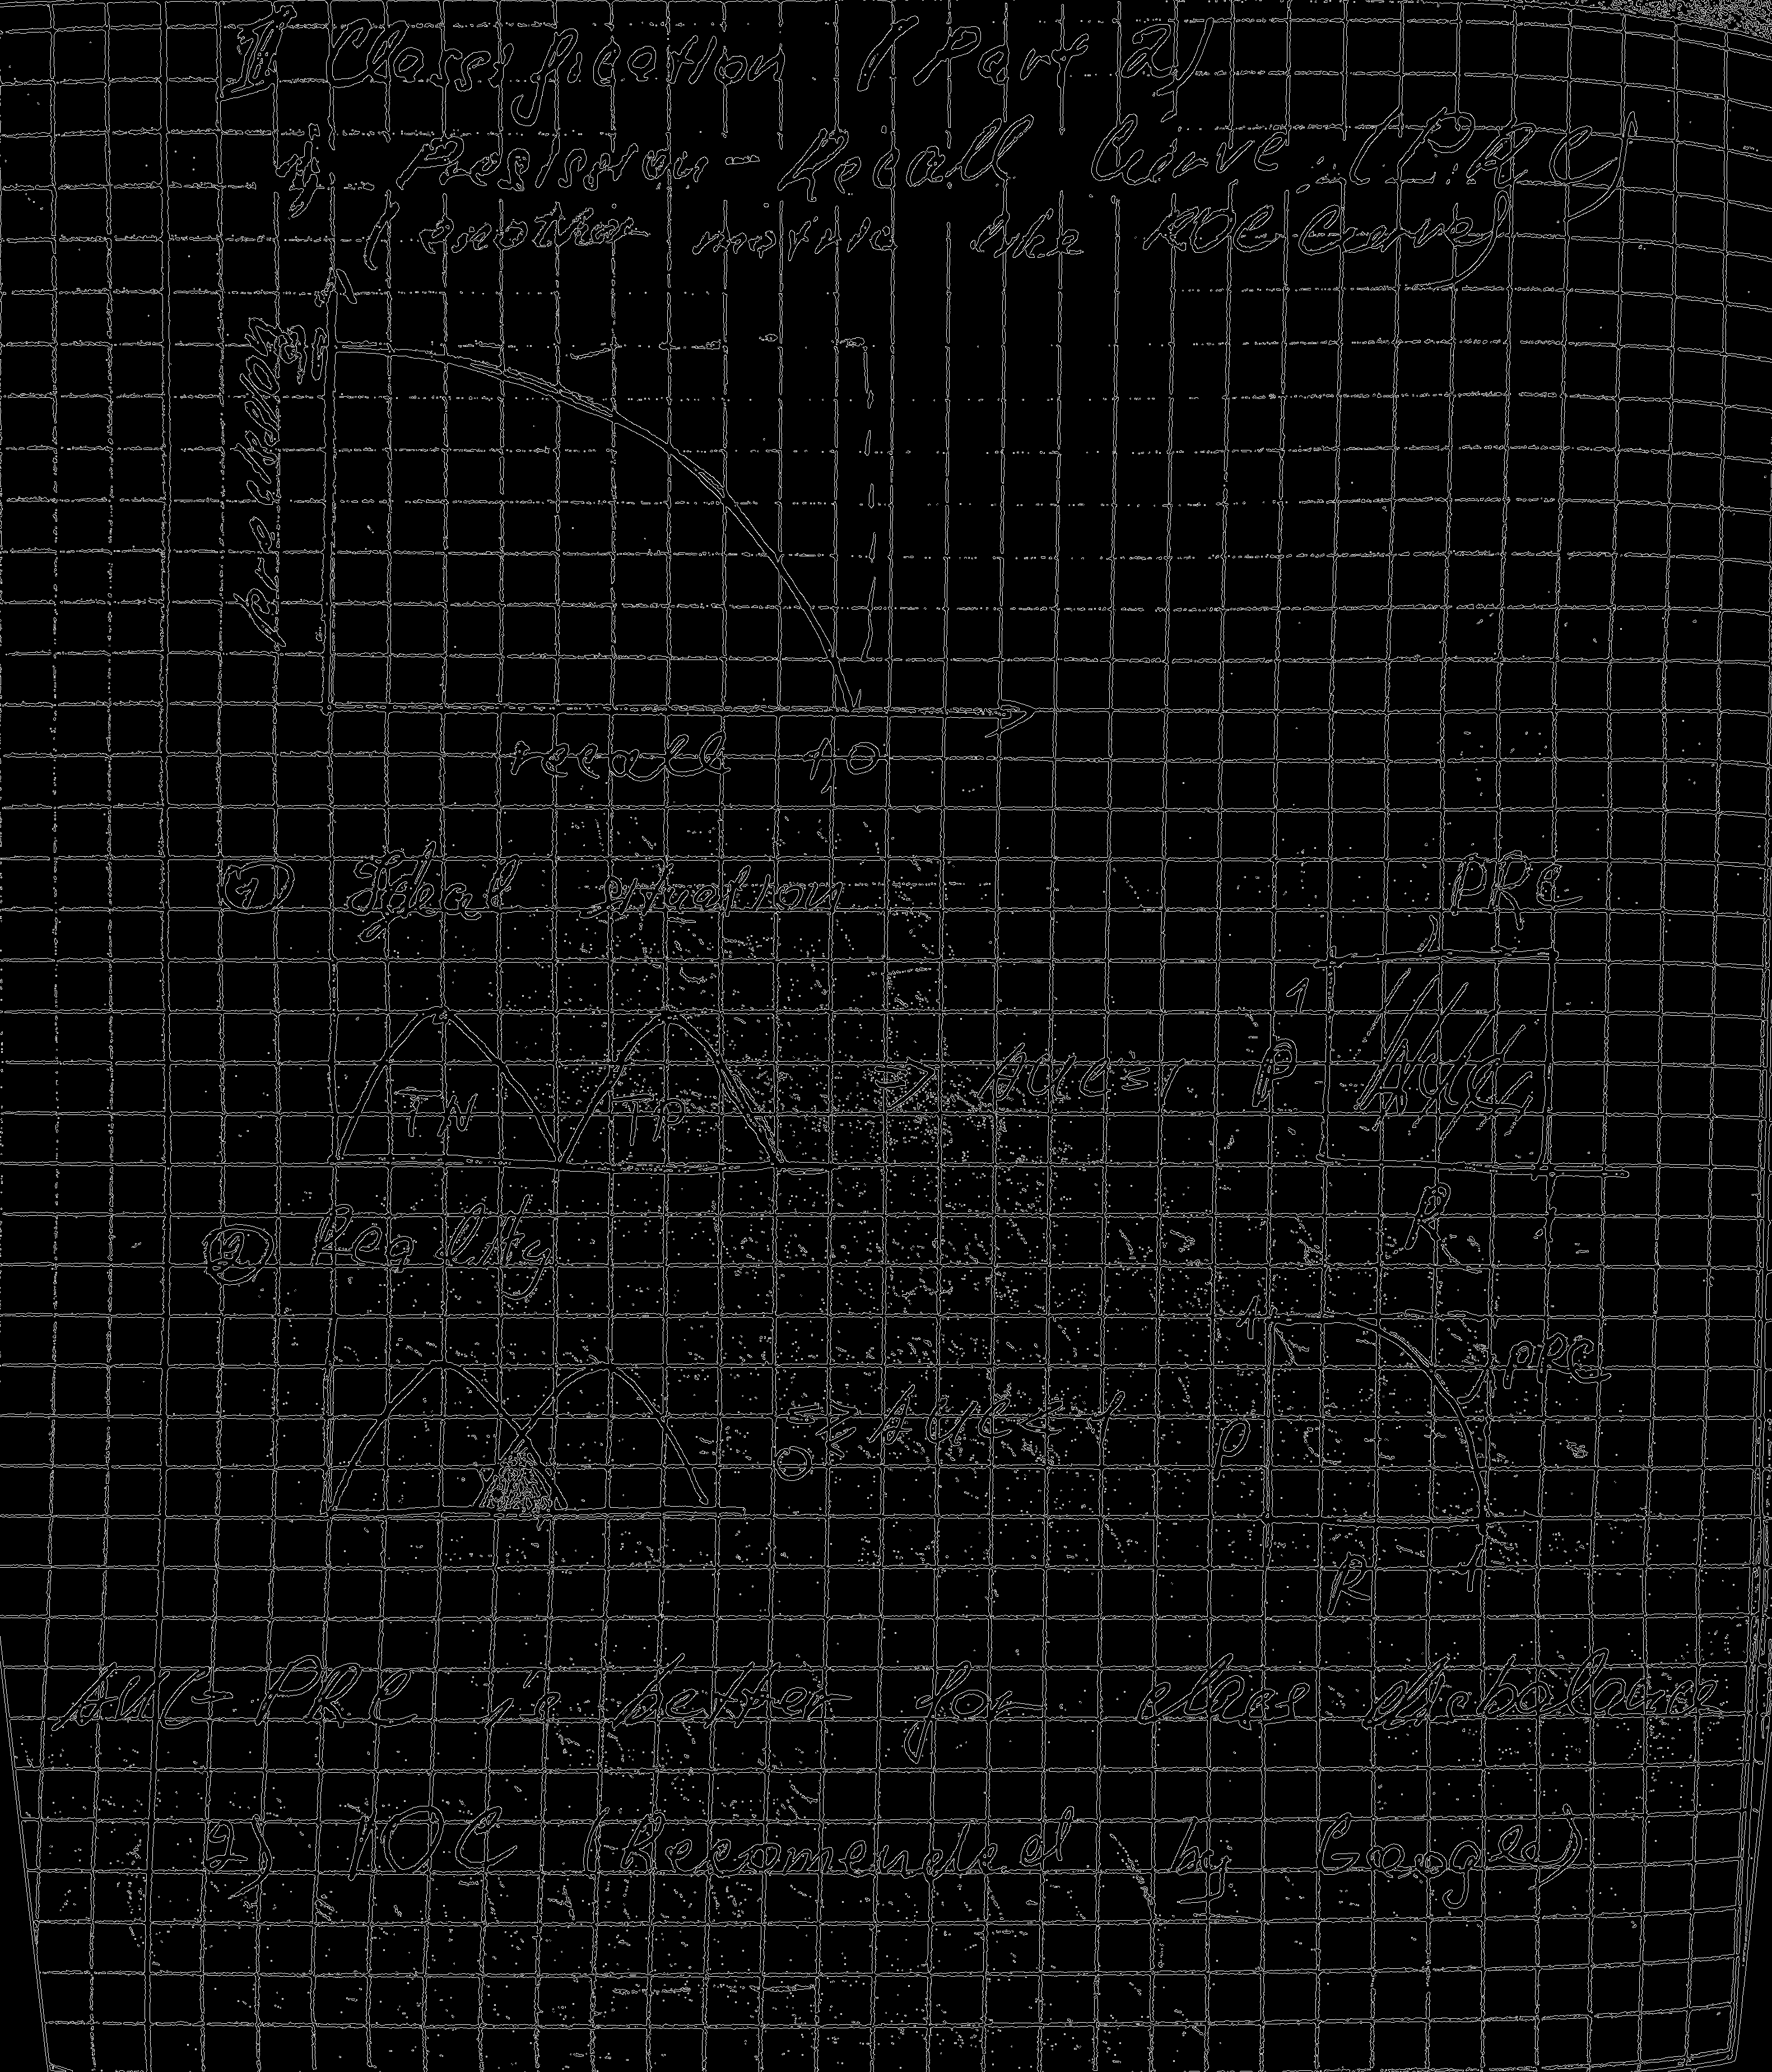 II Classification (Part 2)
1) Presission-Recall Curve (PRC)
(another metric like ROC Curve)
1,0
presission
recall 1,0
① Ideal situation
PRC
1
TN TP ⇒ AUC=1 P AUC
R
② Reality
1
PRC
⇒ AUC<1 P
R 1
AUC-PRC is better for class disbalance
2) IOC (Recomended by Google)